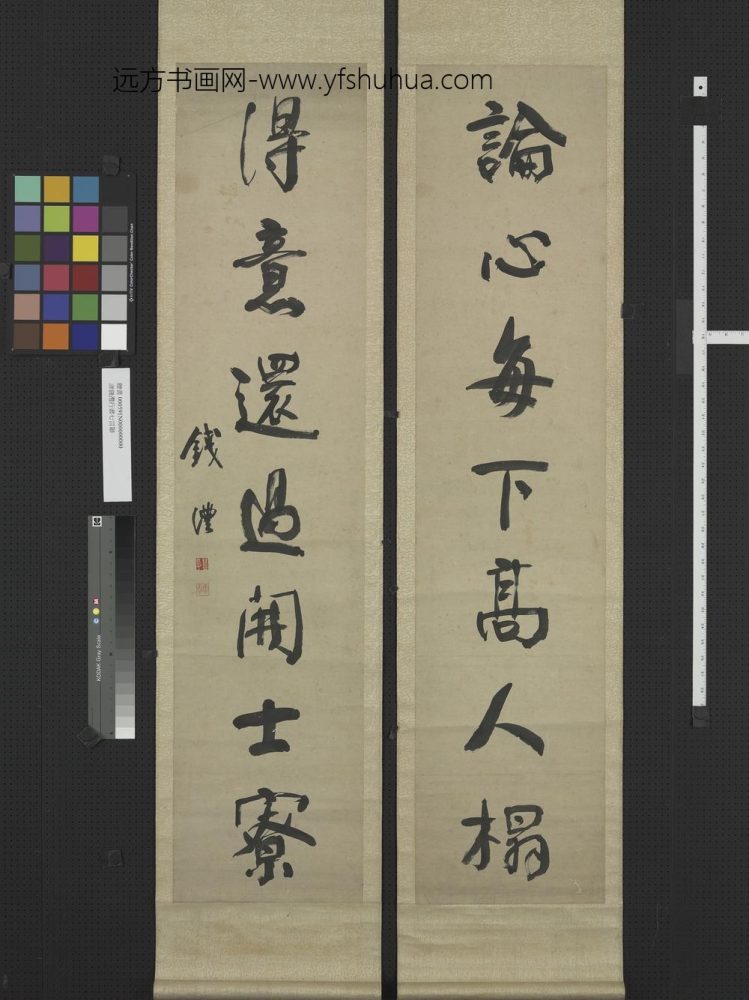 远方书画网-www.yfshuhua.com
論心每下髙人榻
得意還過開士寮
錢灃
KODAK Gray Scale